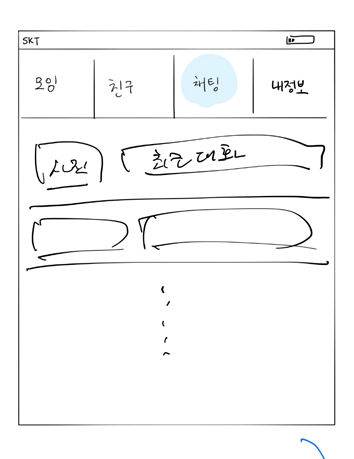 SKT
모임 친구 채팅 내정보
사진 최근 대화